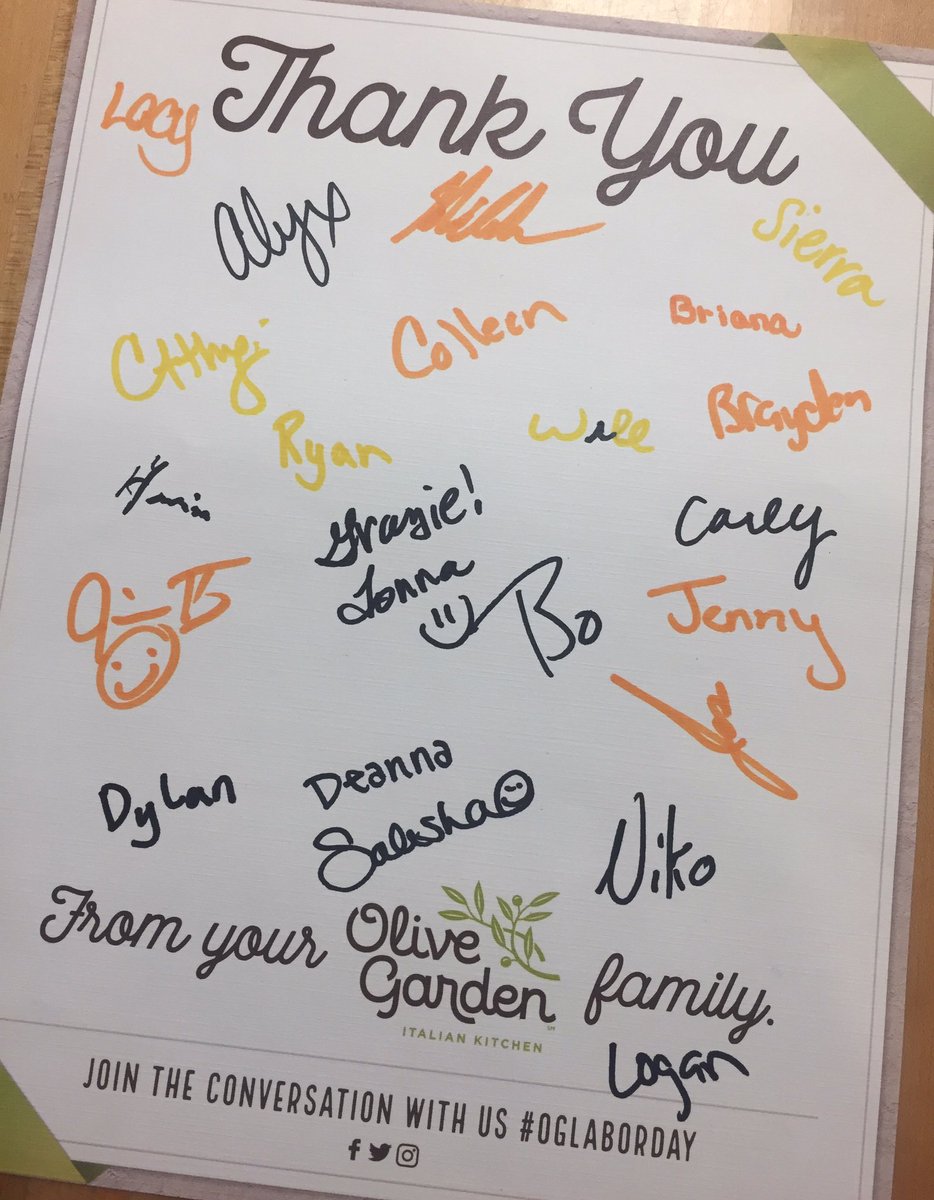 Thank You
Lacy
Alyx
Sierra
Colleen
Briana
Brayden
Ryan
Will
Grazie!
Carley
Bo
Jenny
Dylan
Deanna
Niko
From your Olive Garden family.
ITALIAN KITCHEN
Logan
JOIN THE CONVERSATION WITH US #OGLABORDAY